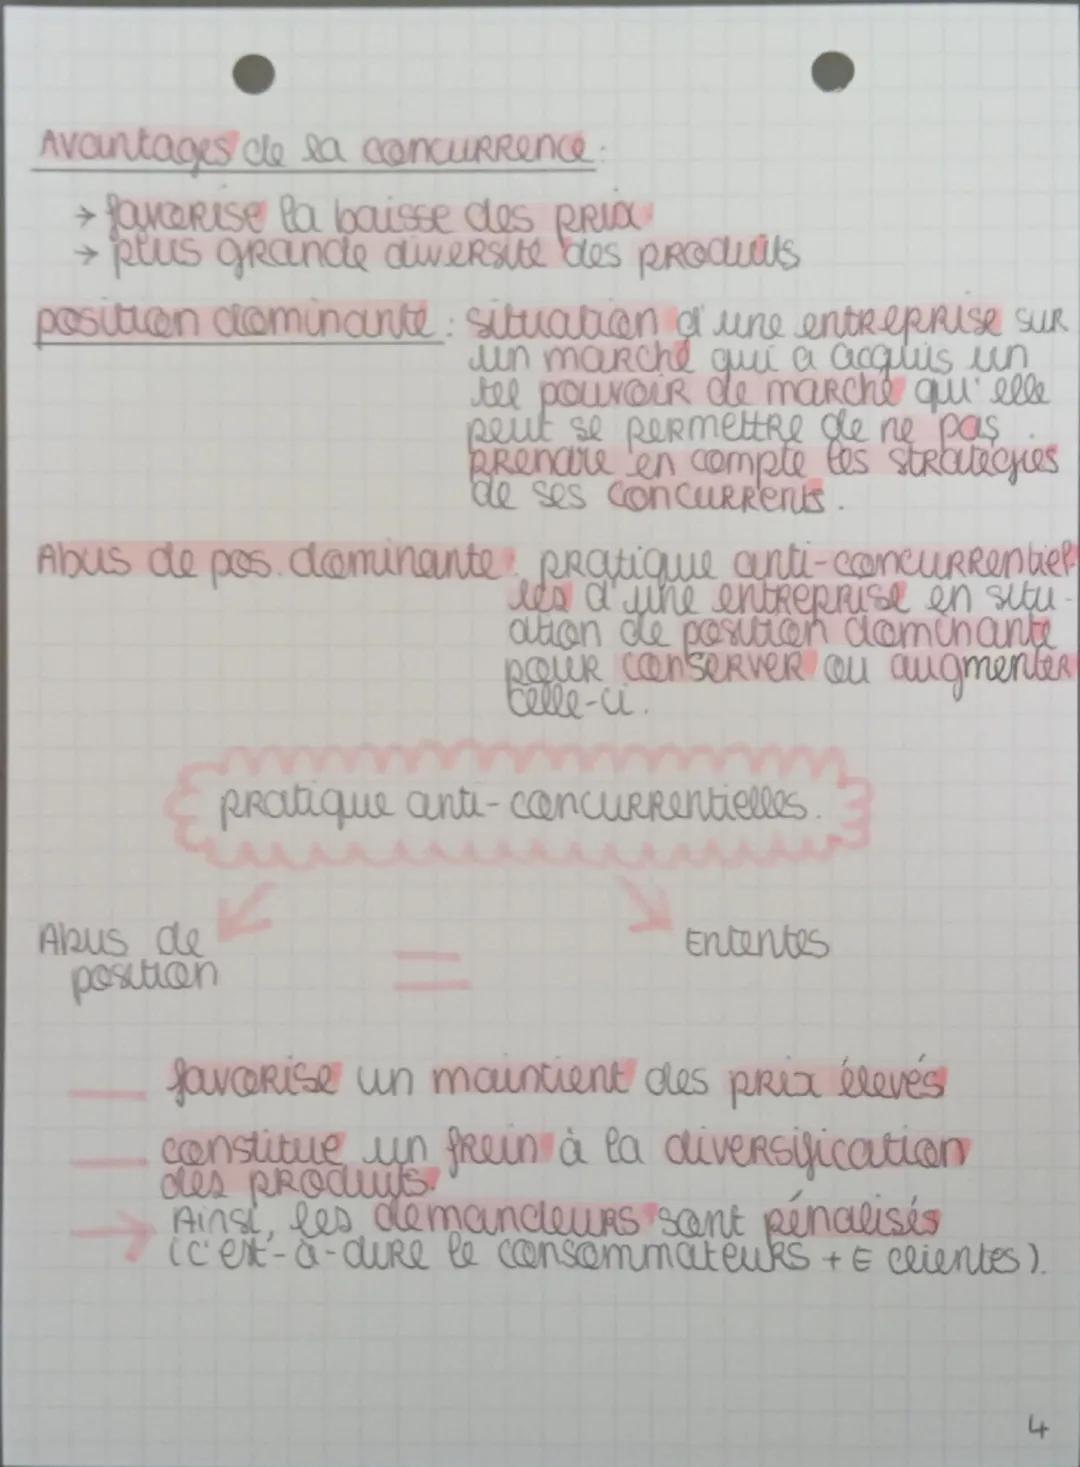 Avantages de la concurrence :
→ favorise la baisse des prix
→ plus grande diversité des produits
position dominante : situation d'une entreprise sur
un marché qui a acquis un
tel pouvoir de marché qu'elle
peut se permettre de ne pas
prendre en compte les stratégies
de ses concurrents.
Abus de pos. dominante : pratique anti-concurrentiel-
les d'une entreprise en situ-
ation de position dominante
pour conserver ou augmenter
celle-ci.
pratique anti-concurrentielles.
Abus de
position
=
Ententes
— favorise un maintient des prix élevés
— constitue un frein à la diversification
des produits.
→ Ainsi, les demandeurs sont pénalisés
(c'est-à-dire le consommateurs + E clientes).
4